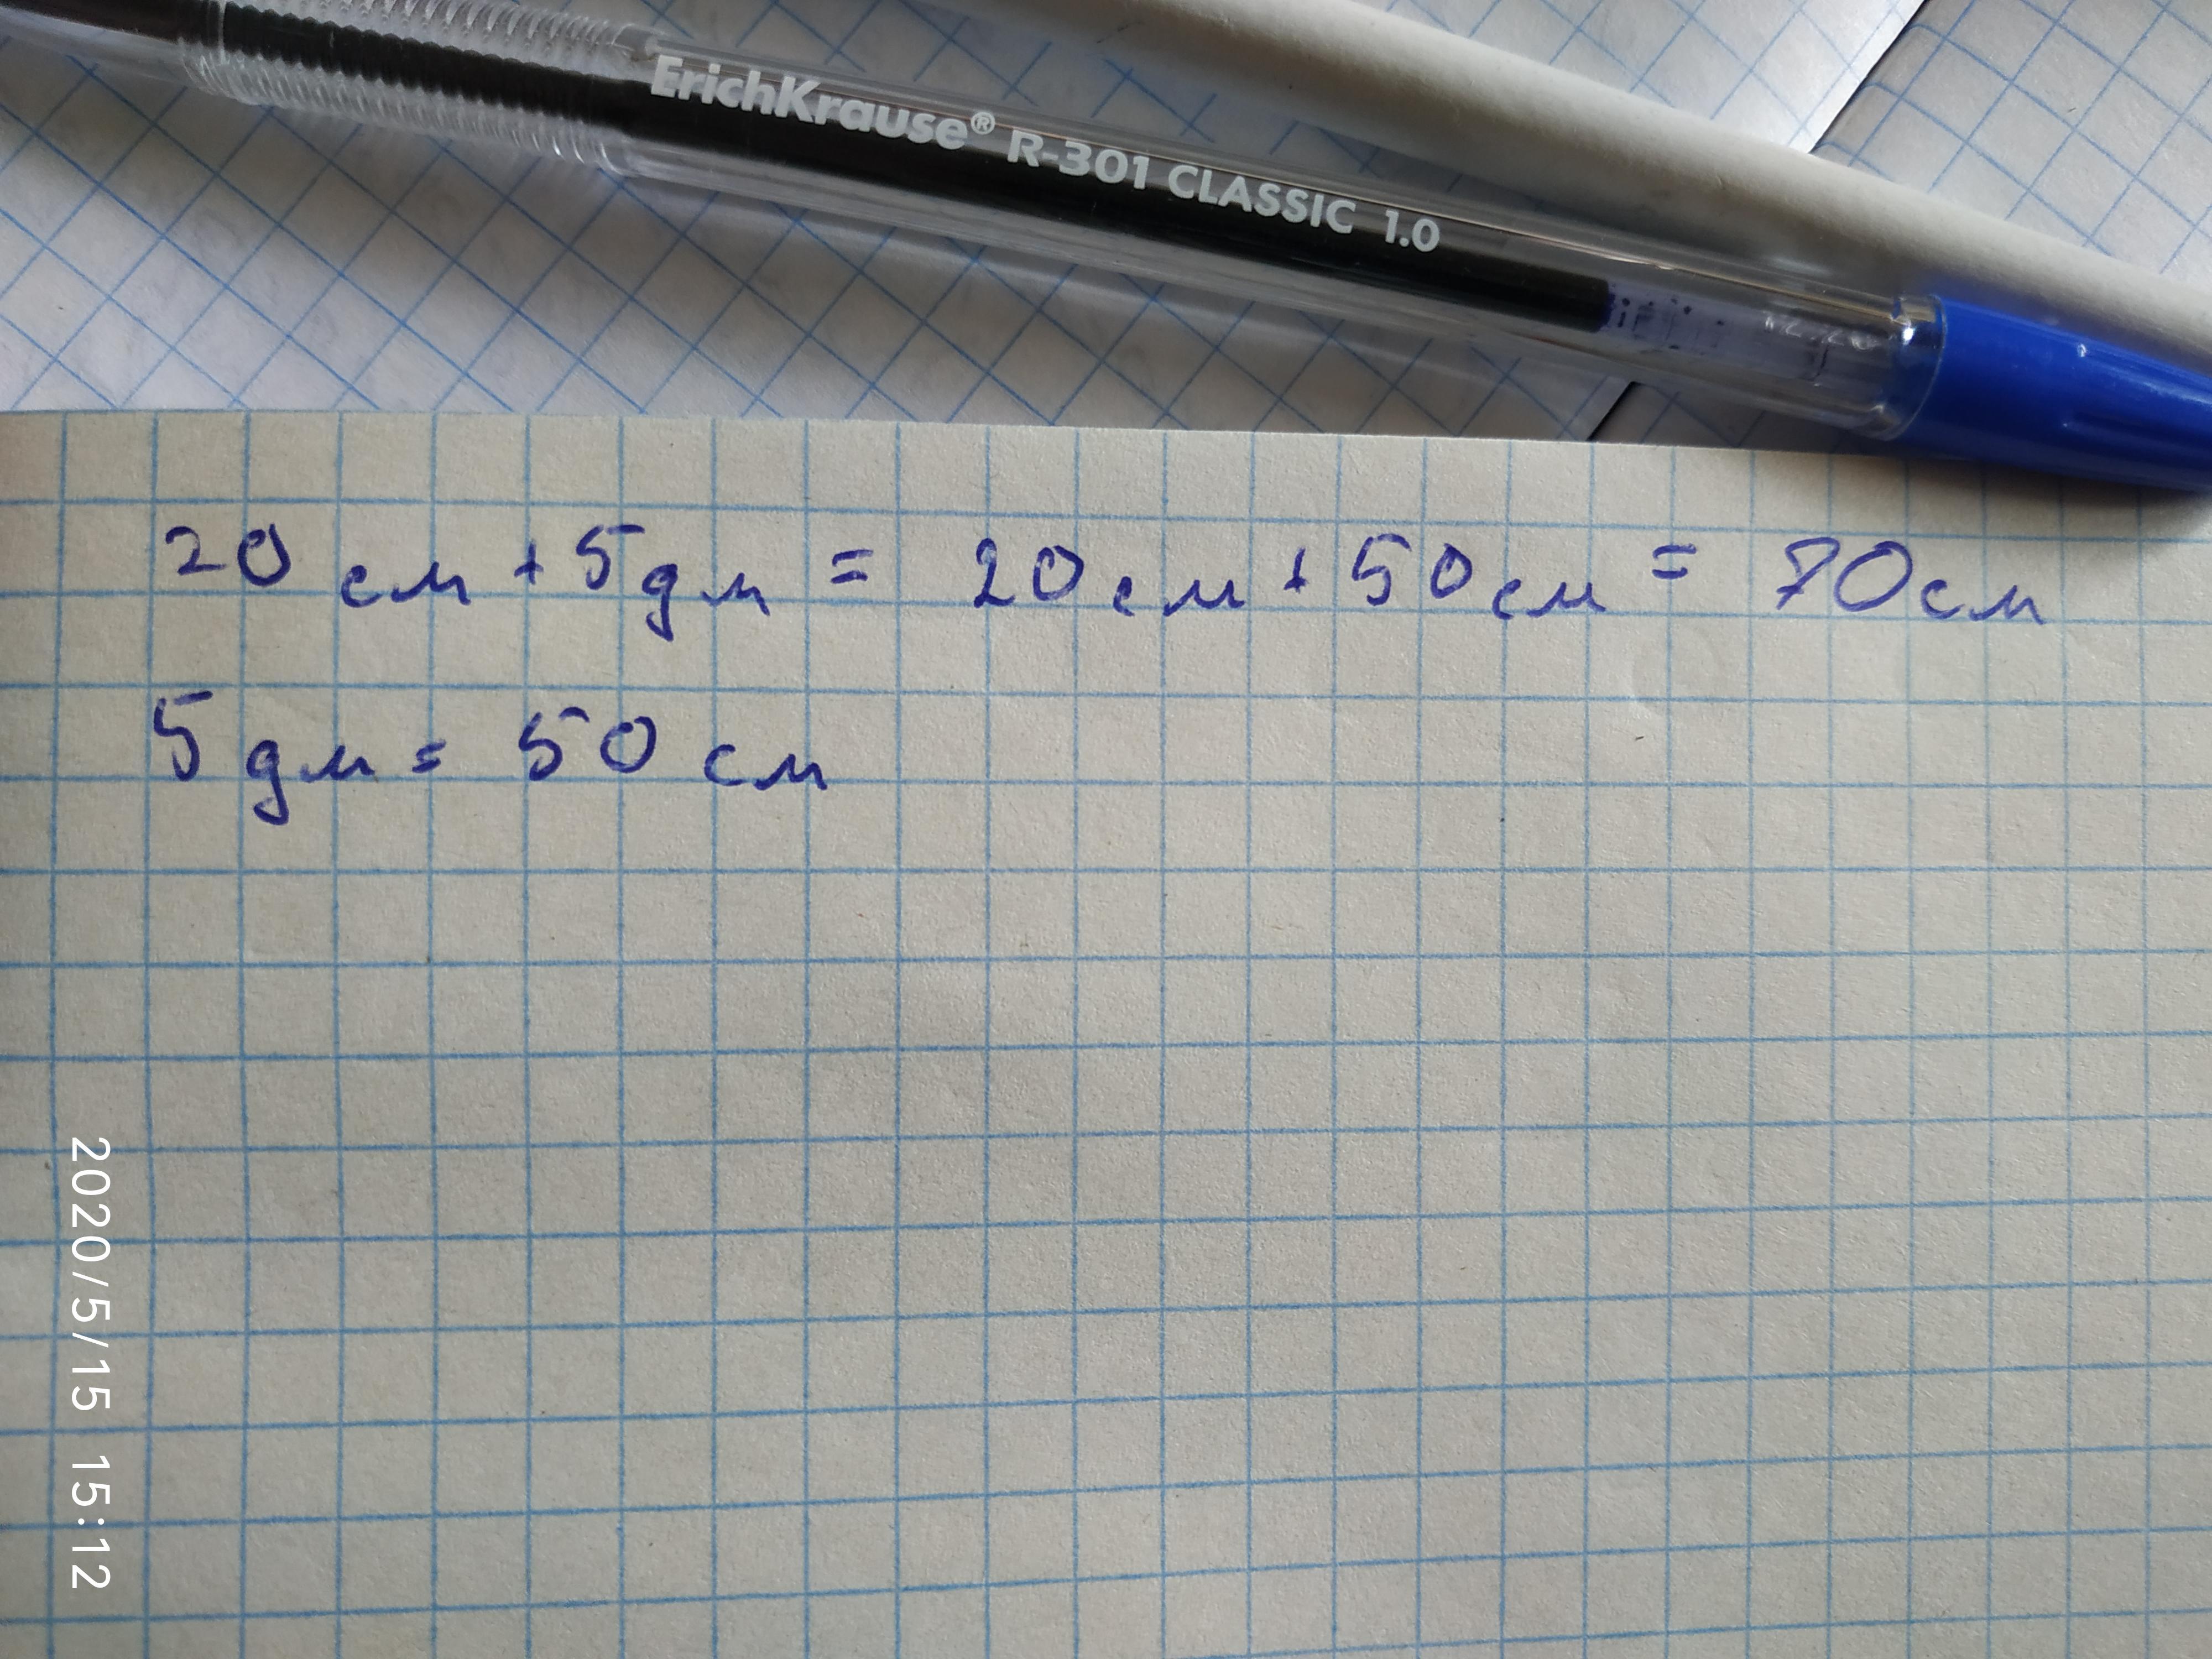 ErichKrause® R-301 CLASSIC 1.0
20 см + 5 дм = 20 см + 50 см = 70 см
5 дм = 50 см
2020/5/15 15:12